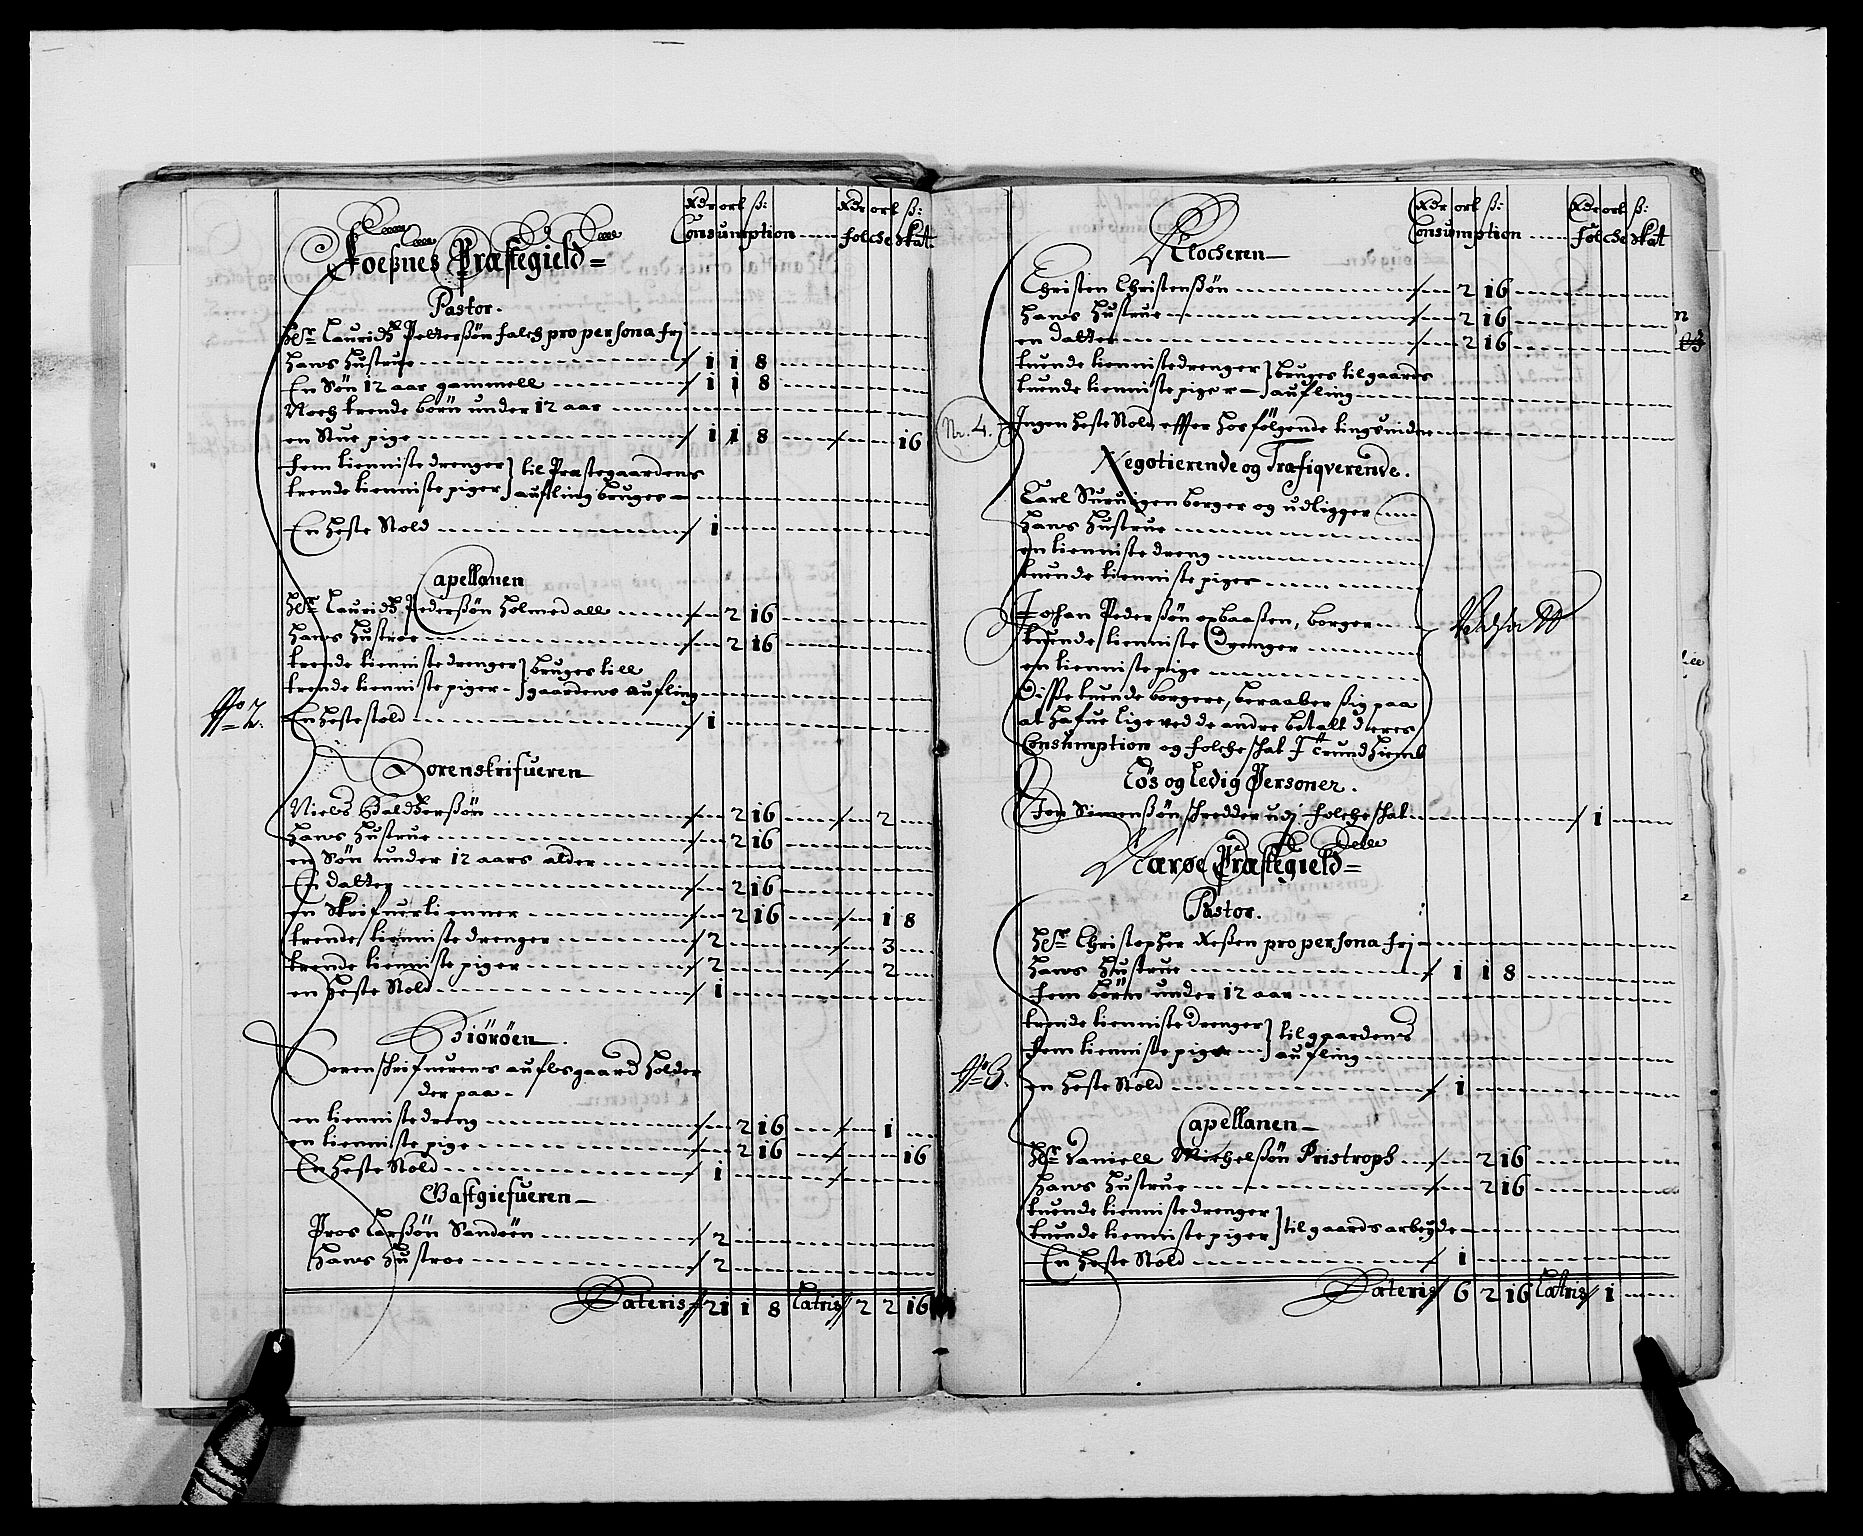 Rdr ort ß: Rdr ort ß:
Consumption Folche Skat
Foeßnes Præstegield
Pastor.
Hr Lauridtz Pettersßøn Falch pro persona fri
Hans Hustrue 1 1 8
En Søn 12 aar gammell 1 1 8
Noch trende børn under 12 aar
en Stue pige 1 1 8 16
Fem tienniste drenger } til Præstegaardens
trende tienniste piger } aufling bruges
En Heste Stold 1
Capellanen
Hr Lauridtz Pederßøn Holmedall 2 16
Hans Hustroe 2 16
trende tienniste drenger } bruges till
trende tienniste piger } gaardens aufling
No 2.
En Heste stold 1
Sorenskrifueren
Niels Baldtzerßøn 2 16 2
Hans Hustrue 2 16
en Søn under 12 aars alder
En datter 2 16
en Skrifuertienner 2 16 1 8
trende tienniste drenger 2 3
trende tienniste piger 2 2
en Heste Stold 1
Biørøen
Sorenschrifuerens auflsgaard Holder
der paa
en tienniste dreng 2 16 1
en tienniste pige 2 16 16
En Heste Stold 1
Gastgiefueren
Pros Larßøn Sandøen 2
Hans Hustroe 2
Lateris 21 1 8 Latris 2 2 16
Rdr ort ß: Rdr ort ß:
Consumption Folche Skat
Klocheren
Christen Christenßøn 2 16
Hans Hustrue 2 16
en datter 2 16
tuende tienniste drenger } bruges til gaards
tuende tienniste piger } aufling
Nr. 4.
Ingen Heste Stold effter Hosfölgende tingsvidne
Negotierende og Trafiqverende.
Carl borger og udligger
Hans Hustrue
en tienniste dreng
tuende tienniste piger
Johan Pederßøn opbaaßen, borger
tuende tienniste drenger
en tienniste pige
Disse tuende borgere, beraaber sig paa
at Hafue lige ved de andre betalt deres
Consumption og folcheschat I Trundhiemb
Løs og Ledig Personer.
Jon Simenßøn schredder udj folcheschat 1
Nærøe Præstegield
Pastor.
Hr Christopher Reßen pro persona fri
Hans Hustrue 1 1 8
Fem börn under 12 aar
trende tienniste drenger } til gaardens
Fem tienniste piger } aufling
No 3.
en Heste Stold 1
Capellanen
Hr Daniell Michelßøn Pristroph 2 16
Hans Hustrue 2 16
tuende tienniste drenger
tuende tienniste piger } til gaards arbeyde
En Heste Stold 1
Lateris 6 2 16 Latris 1